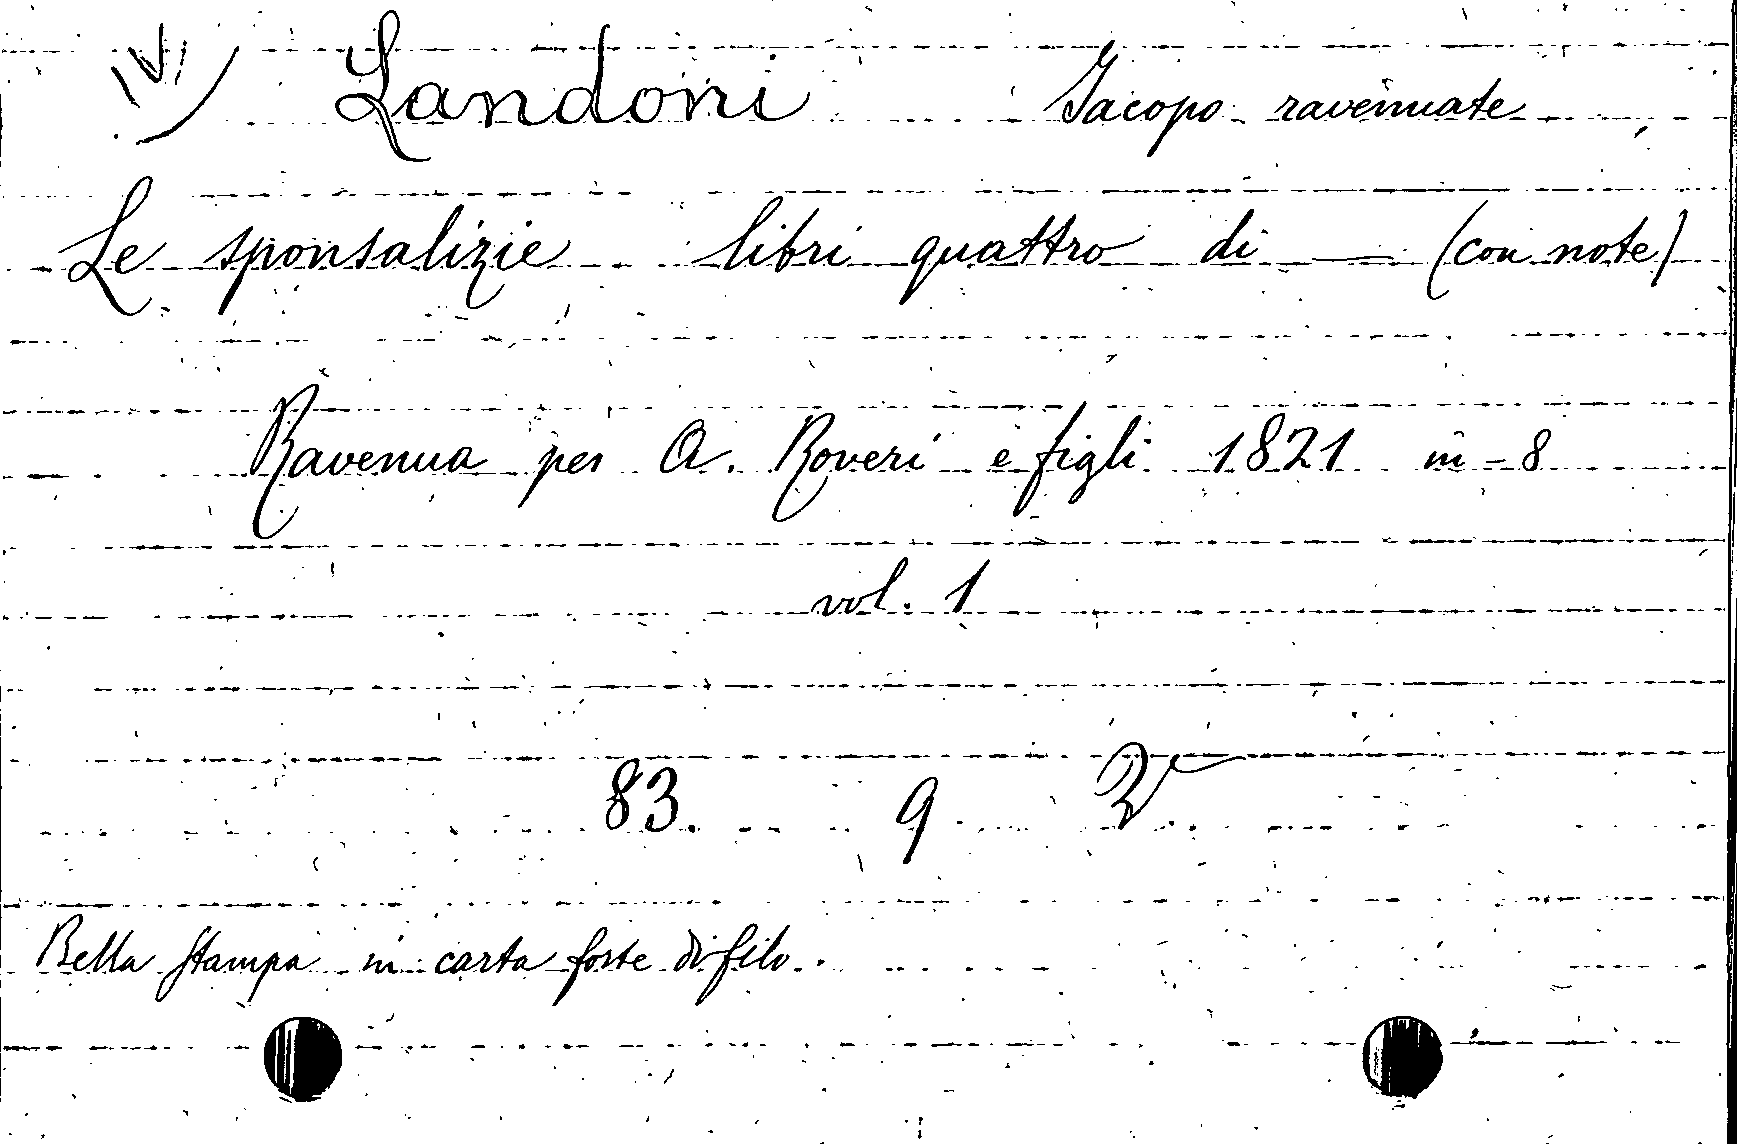 Landoni Jacopo ravennate
Le sponsalizie libri quattro di — (con note)
Ravenna per A. Roveri e figli 1821 in-8
vol. 1
83. 9
Bella stampa in carta forte di filo.